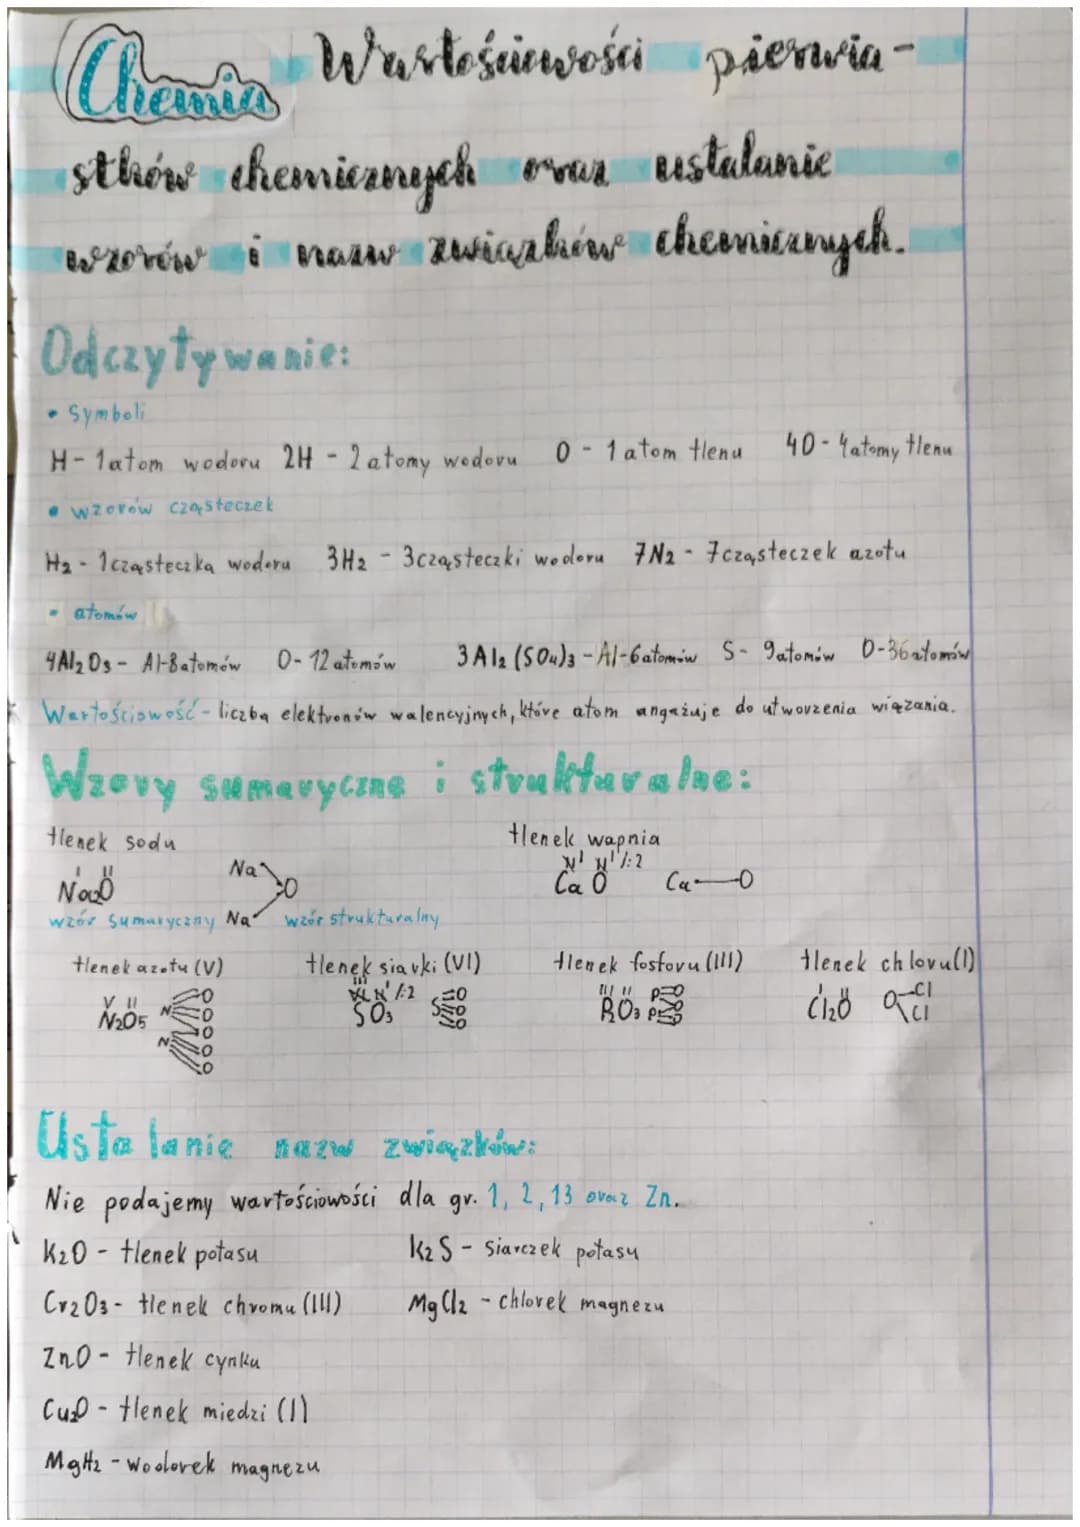 Chemia Wartościowości pierwia-
stków chemicznych oraz ustalanie
wzorów i nazw związków chemicznych.
Odczytywanie:
• Symboli
H - 1 atom wodoru 2H - 2 atomy wodoru O - 1 atom tlenu 4O - 4 atomy tlenu
• wzorów cząsteczek
H2 - 1 cząsteczka wodoru 3H2 - 3 cząsteczki wodoru 7N2 - 7 cząsteczek azotu
• atomów
4Al2O3 - Al-8 atomów O-12 atomów 3Al2(SO4)3 - Al-6 atomów S-9 atomów O-36 atomów
Wartościowość - liczba elektronów walencyjnych, które atom angażuje do utworzenia wiązania.
Wzory sumaryczne i strukturalne:
tlenek sodu tlenek wapnia
I II Na II II /:2
Na2O O CaO Ca O
wzór sumaryczny Na wzór strukturalny
tlenek azotu (V) tlenek siarki (VI) tlenek fosforu (III) tlenek chloru (I)
V II N O O O VI II /:2 S O O O III II P O O O P I II O Cl Cl
N2O5 N O O SO3 P2O3 Cl2O
Ustalanie nazw związków:
Nie podajemy wartościowości dla gr. 1, 2, 13 oraz Zn.
K2O - tlenek potasu K2S - siarczek potasu
Cr2O3 - tlenek chromu (III) MgCl2 - chlorek magnezu
ZnO - tlenek cynku
Cu2O - tlenek miedzi (I)
MgH2 - wodorek magnezu